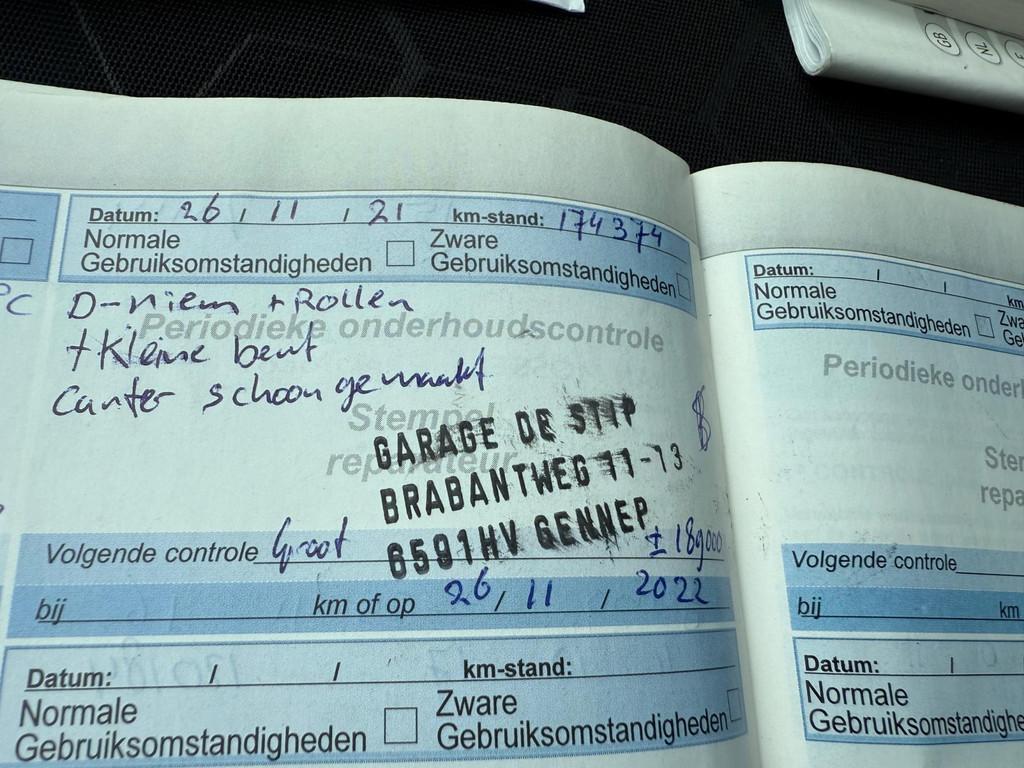 GB NL
Datum: 26 / 11 / 21 km-stand: 174374
Normale Gebruiksomstandigheden
Zware Gebruiksomstandigheden
D-riem + Rollen
+ Kleine beurt
Carter schoongemaakt
Periodieke onderhoudscontrole
Stempel
reparateur
GARAGE DE STIP
BRABANTWEG 11-13
6591HV GENNEP
Volgende controle Groot ± 189000
bij km of op 26 / 11 / 2022
Datum: / / km-stand:
Normale Gebruiksomstandigheden
Zware Gebruiksomstandigheden
Datum: / / km
Normale Gebruiksomstandigheden
Zwa
Ge
Periodieke onderh
Stem
repa
Volgende controle
bij km
Datum: /
Normale Gebruiksomstandigheden